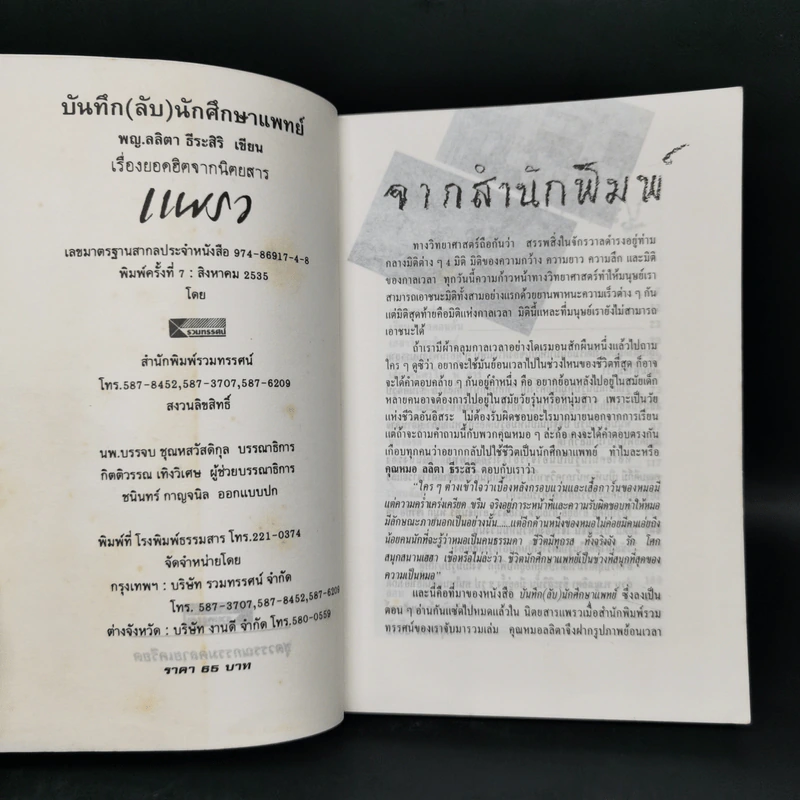 บันทึก(ลับ)นักศึกษาแพทย์
พญ.ลลิตา ธีระสิริ เขียน
เรื่องยอดฮิตจากนิตยสาร
แพรว
เลขมาตรฐานสากลประจำหนังสือ 974-86917-4-8
พิมพ์ครั้งที่ 7 : สิงหาคม 2535
โดย
รวมทรรศน์
สำนักพิมพ์รวมทรรศน์
โทร.587-8452,587-3707,587-6209
สงวนลิขสิทธิ์
นพ.บรรจบ ชุณหสวัสดิกุล บรรณาธิการ
กิตติวรรณ เทิงวิเศษ ผู้ช่วยบรรณาธิการ
ชนินทร์ กาญจนิล ออกแบบปก
พิมพ์ที่ โรงพิมพ์ธรรมสาร โทร.221-0374
จัดจำหน่ายโดย
กรุงเทพฯ : บริษัท รวมทรรศน์ จำกัด
โทร. 587-3707,587-8452,587-6209
ต่างจังหวัด : บริษัท งานดี จำกัด โทร.580-0559
ราคา 65 บาท
จากสำนักพิมพ์
ทางวิทยาศาสตร์ถือกันว่า สรรพสิ่งในจักรวาลดำรงอยู่ท่าม
กลางมิติต่าง ๆ 4 มิติ มิติของความกว้าง ความยาว ความลึก และมิติ
ของกาลเวลา ทุกวันนี้ความก้าวหน้าทางวิทยาศาสตร์ทำให้มนุษย์เรา
สามารถเอาชนะมิติทั้งสามอย่างแรกด้วยยานพาหนะความเร็วต่าง ๆ กัน
แต่มิติสุดท้ายคือมิติแห่งกาลเวลา มิตินี้แหละที่มนุษย์เรายังไม่สามารถ
เอาชนะได้
ถ้าเรามีผ้าคลุมกาลเวลาอย่างโดเรมอนสักผืนหนึ่งแล้วไปถาม
ใคร ๆ ดูซิว่า อยากจะใช้มันย้อนเวลาไปในช่วงไหนของชีวิตที่สุด ก็อาจ
จะได้คำตอบคล้าย ๆ กันอยู่คำหนึ่ง คือ อยากย้อนหลังไปอยู่ในสมัยเด็ก
หลายคนอาจต้องการไปอยู่ในสมัยวัยรุ่นหรือหนุ่มสาว เพราะเป็นวัย
แห่งชีวิตอันอิสระ ไม่ต้องรับผิดชอบอะไรมากมายนอกจากการเรียน
แต่ถ้าจะถามคำถามนี้กับพวกคุณหมอ ๆ ล่ะก้อ คงจะได้คำตอบตรงกัน
เกือบทุกคนว่าอยากกลับไปใช้ชีวิตเป็นนักศึกษาแพทย์ ทำไมละหรือ
คุณหมอ ลลิตา ธีระสิริ ตอบกับเราว่า
"ใคร ๆ ต่างเข้าใจว่าเบื้องหลังกรอบแว่นและเสื้อกาวน์ของหมอมี
แต่ความคร่ำเคร่งเครียด ขรึม จริงอยู่ภาระหน้าที่และความรับผิดชอบทำให้หมอ
มีลักษณะภายนอกเป็นอย่างนั้น.....แต่อีกด้านหนึ่งของหมอไม่ค่อยมีคนเอ่ยถึง
น้อยคนนักที่จะรู้ว่าหมอเป็นคนธรรมดา ชีวิตมีทุกรส ทั้งจริงจัง รัก โศก
สนุกสนานเฮฮา เชื่อหรือไม่ล่ะว่า ชีวิตนักศึกษาแพทย์เป็นช่วงที่สนุกที่สุดของ
ความเป็นหมอ"
และนี่คือที่มาของหนังสือ บันทึก(ลับ)นักศึกษาแพทย์ ซึ่งลงเป็น
ตอน ๆ อ่านกันแซ่ดไปหมดแล้วใน นิตยสารแพรวเมื่อสำนักพิมพ์รวม
ทรรศน์ของเราจับมารวมเล่ม คุณหมอลลิตาจึงฝากรูปภาพย้อนเวลา